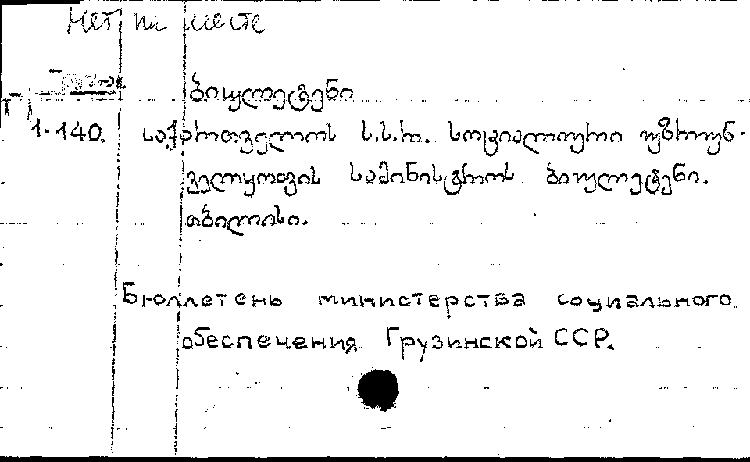 Нет на месте
ბიულეტენი
1-140. საქართველოს ს.ს.რ. სოციალიური უზრუნ-
ველყოფის სამინისტროს ბიულეტენი.
თბილისი.
Бюллетень министерства социального
обеспечения Грузинской ССР.